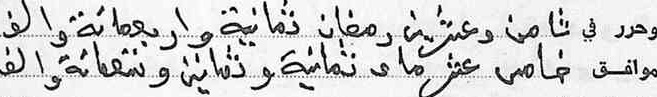 وحرر في ثامن وعشرين رمضان ثمانية واربعمائة والف
موافق خامس عشر ماي ثمانية وثمانين وتسعمائة والف